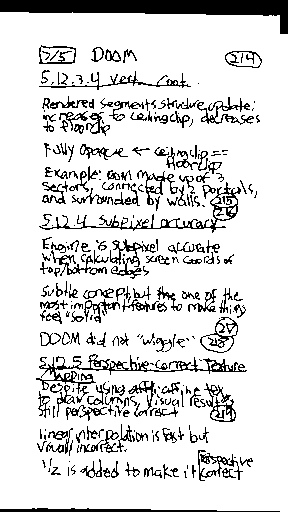 7/5 DOOM 214
5.12.3.4 Vert. Cont.
Rendered segments structure update:
increases to ceilingclip, decreases
to floorclip
Fully Opaque ← ceilingclip ==
floorclip
Example: room made up of 3
sectors, connected by 2 portals,
and surrounded by walls. 215
216
5.12.4 Subpixel accuracy
Engine is subpixel accurate
when calculating screen coords of
top/bottom edges
Subtle concept, but the one of the
most important features to make things
feel "solid"
217
DOOM did not "wiggle" 218
5.12.5 Perspective-correct Texture
Mapping
Despite using affine tex
to draw columns, visual results
still perspective correct 219
linear interpolation is fast but
visually incorrect.
1/z is added to make it perspective
correct